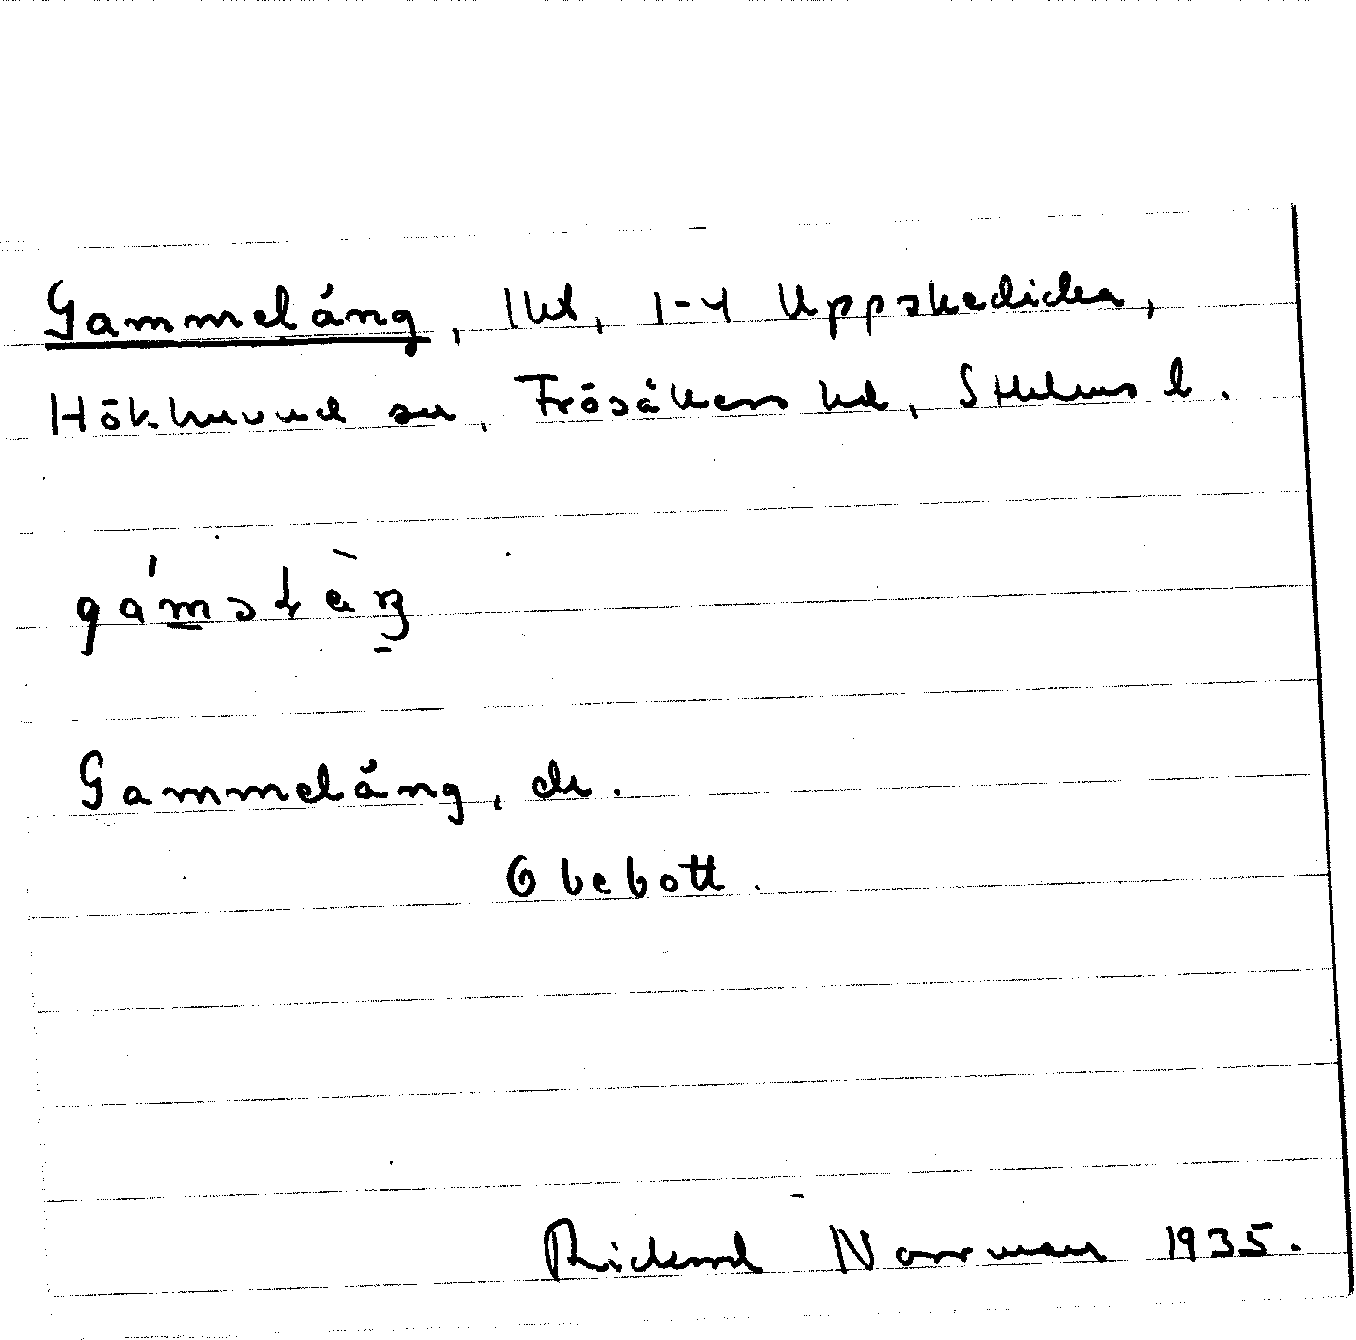 Gammeläng, lht, 1-4 Uppskedicka,
Hökhuvud sn, Frösåkers hd, Sthlms l.
Gammeläng, de.
Obebott.
Rickard Norrman 1935.